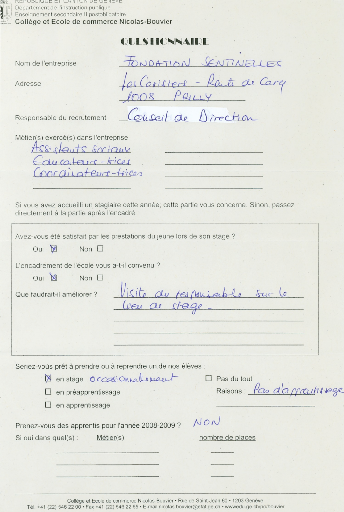 REPUBLIQUE ET CANTON DE GENEVE
Département de l'instruction publique
Enseignement secondaire II postobligatoire
Collège et Ecole de commerce Nicolas-Bouvier
QUESTIONNAIRE
Nom de l'entreprise FONDATION SENTINELLES
Adresse Les Cerisiers - Route de
1008 PRILLY
Responsable du recrutement Conseil de Direction
Métier(s) exercé(s) dans l'entreprise
Assistants sociaux
Educateurs-trices
Coordinateurs-trices
Si vous avez accueilli un stagiaire cette année, cette partie vous concerne. Sinon, passez
directement à la partie après l'encadré
Avez-vous été satisfait par les prestations du jeune lors de son stage ?
Oui ☒ Non ☐
L'encadrement de l'école vous a-t-il convenu ?
Oui ☒ Non ☐
Que faudrait-il améliorer ? Visite du responsable sur le
lieu de stage.
Seriez-vous prêt à prendre ou à reprendre un de nos élèves :
☒ en stage occasionnellement ☐ Pas du tout
☐ en préapprentissage Raisons : Pas d'apprentissage
☐ en apprentissage
Prenez-vous des apprentis pour l'année 2008-2009 ? NON
Si oui dans quel(s) : Métier(s) nombre de places
Collège et Ecole de commerce Nicolas Bouvier • Rue de Saint-Jean 60 • 1203 Genève